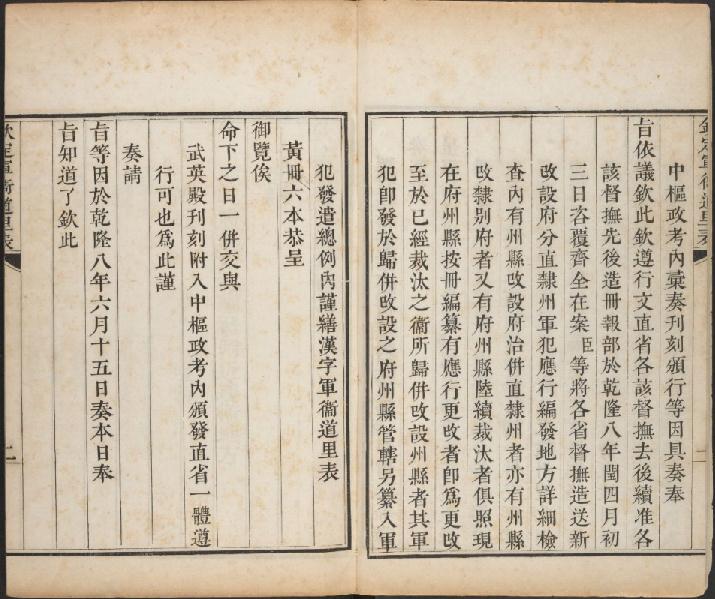 欽定軍衞道里表
中樞政考內彙奏刊刻頒行等因具奏奉
旨依議欽此欽遵行文直省各該督撫去後續准各
該督撫先後造冊報部於乾隆八年閏四月初
三日咨覆齊全在案臣等將各省督撫造送新
改設府分直隸州軍犯應行編發地方詳細檢
查內有州縣改設府治併直隸州者亦有州縣
改隸別府者又有府州縣陸續裁汰者俱照現
在府州縣按冊編纂有應行更改者卽爲更改
至於已經裁汰之衞所歸併改設州縣者其軍
犯卽發於歸併改設之府州縣管轄另纂入軍
犯發遣總例內謹繕漢字軍衞道里表
黃冊六本恭呈
御覽俟
命下之日一併交與
武英殿刊刻附入中樞政考內頒發直省一體遵
行可也爲此謹
奏請
旨等因於乾隆八年六月十五日奏本日奉
旨知道了欽此
欽定軍衞道里表